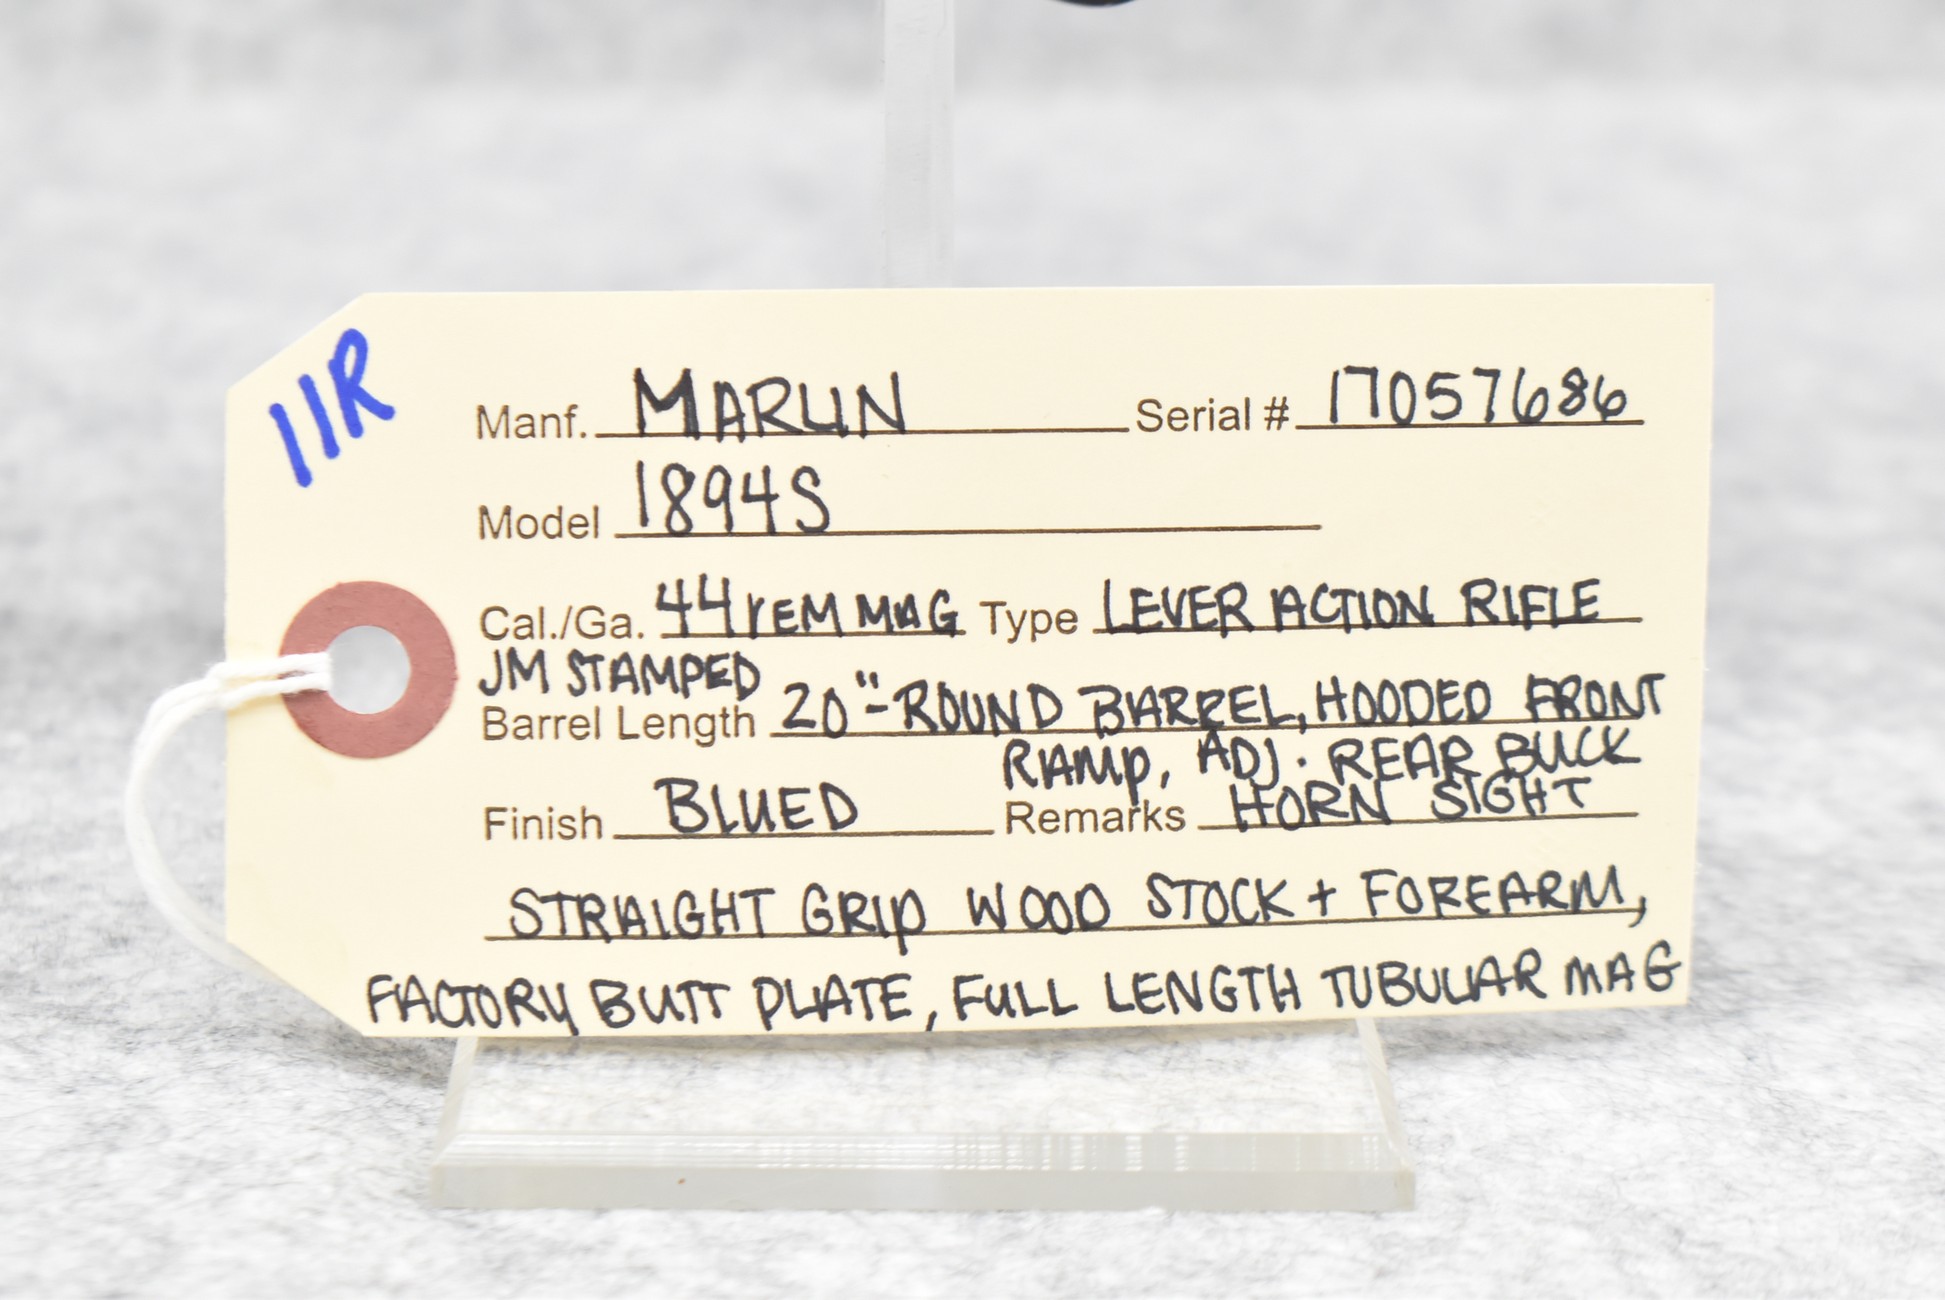 11R
Manf. MARLIN Serial # 17057686
Model 1894S
Cal./Ga. 44 rem MAG Type LEVER ACTION RIFLE
JM STAMPED
Barrel Length 20"-ROUND BARREL, HOODED FRONT
RAMP, ADJ. REAR BUCK
Finish BLUED Remarks HORN SIGHT
STRAIGHT GRIP WOOD STOCK + FOREARM,
FACTORY BUTT PLATE, FULL LENGTH TUBULAR MAG